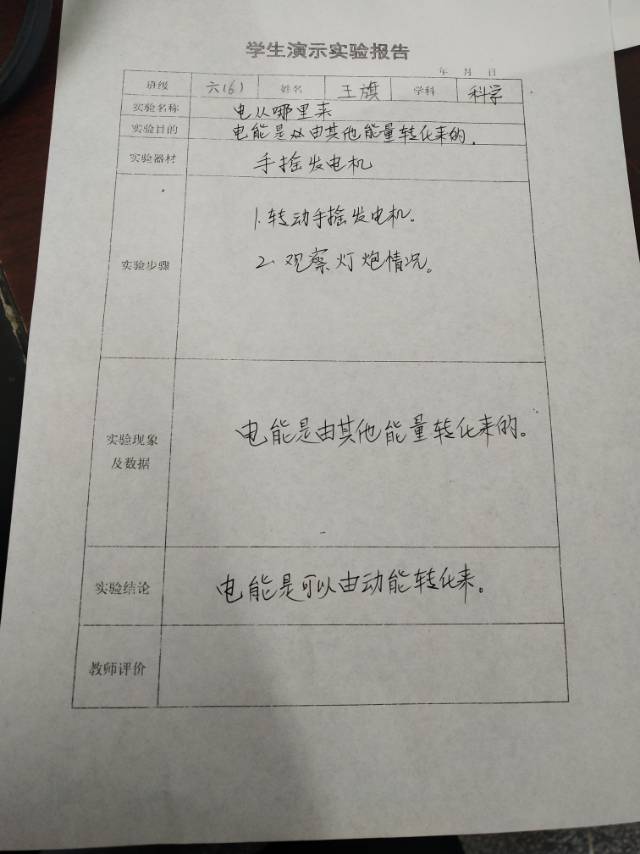 学生演示实验报告
年 月 日
班级 六(6) 姓名 王旗 学科 科学
实验名称 电从哪里来
实验目的 电能是由其他能量转化来的.
实验器材 手摇发电机
实验步骤
1.转动手摇发电机.
2.观察灯炮情况。
实验现象
及数据
电能是由其他能量转化来的。
实验结论 电能是可以由动能转化来。
教师评价